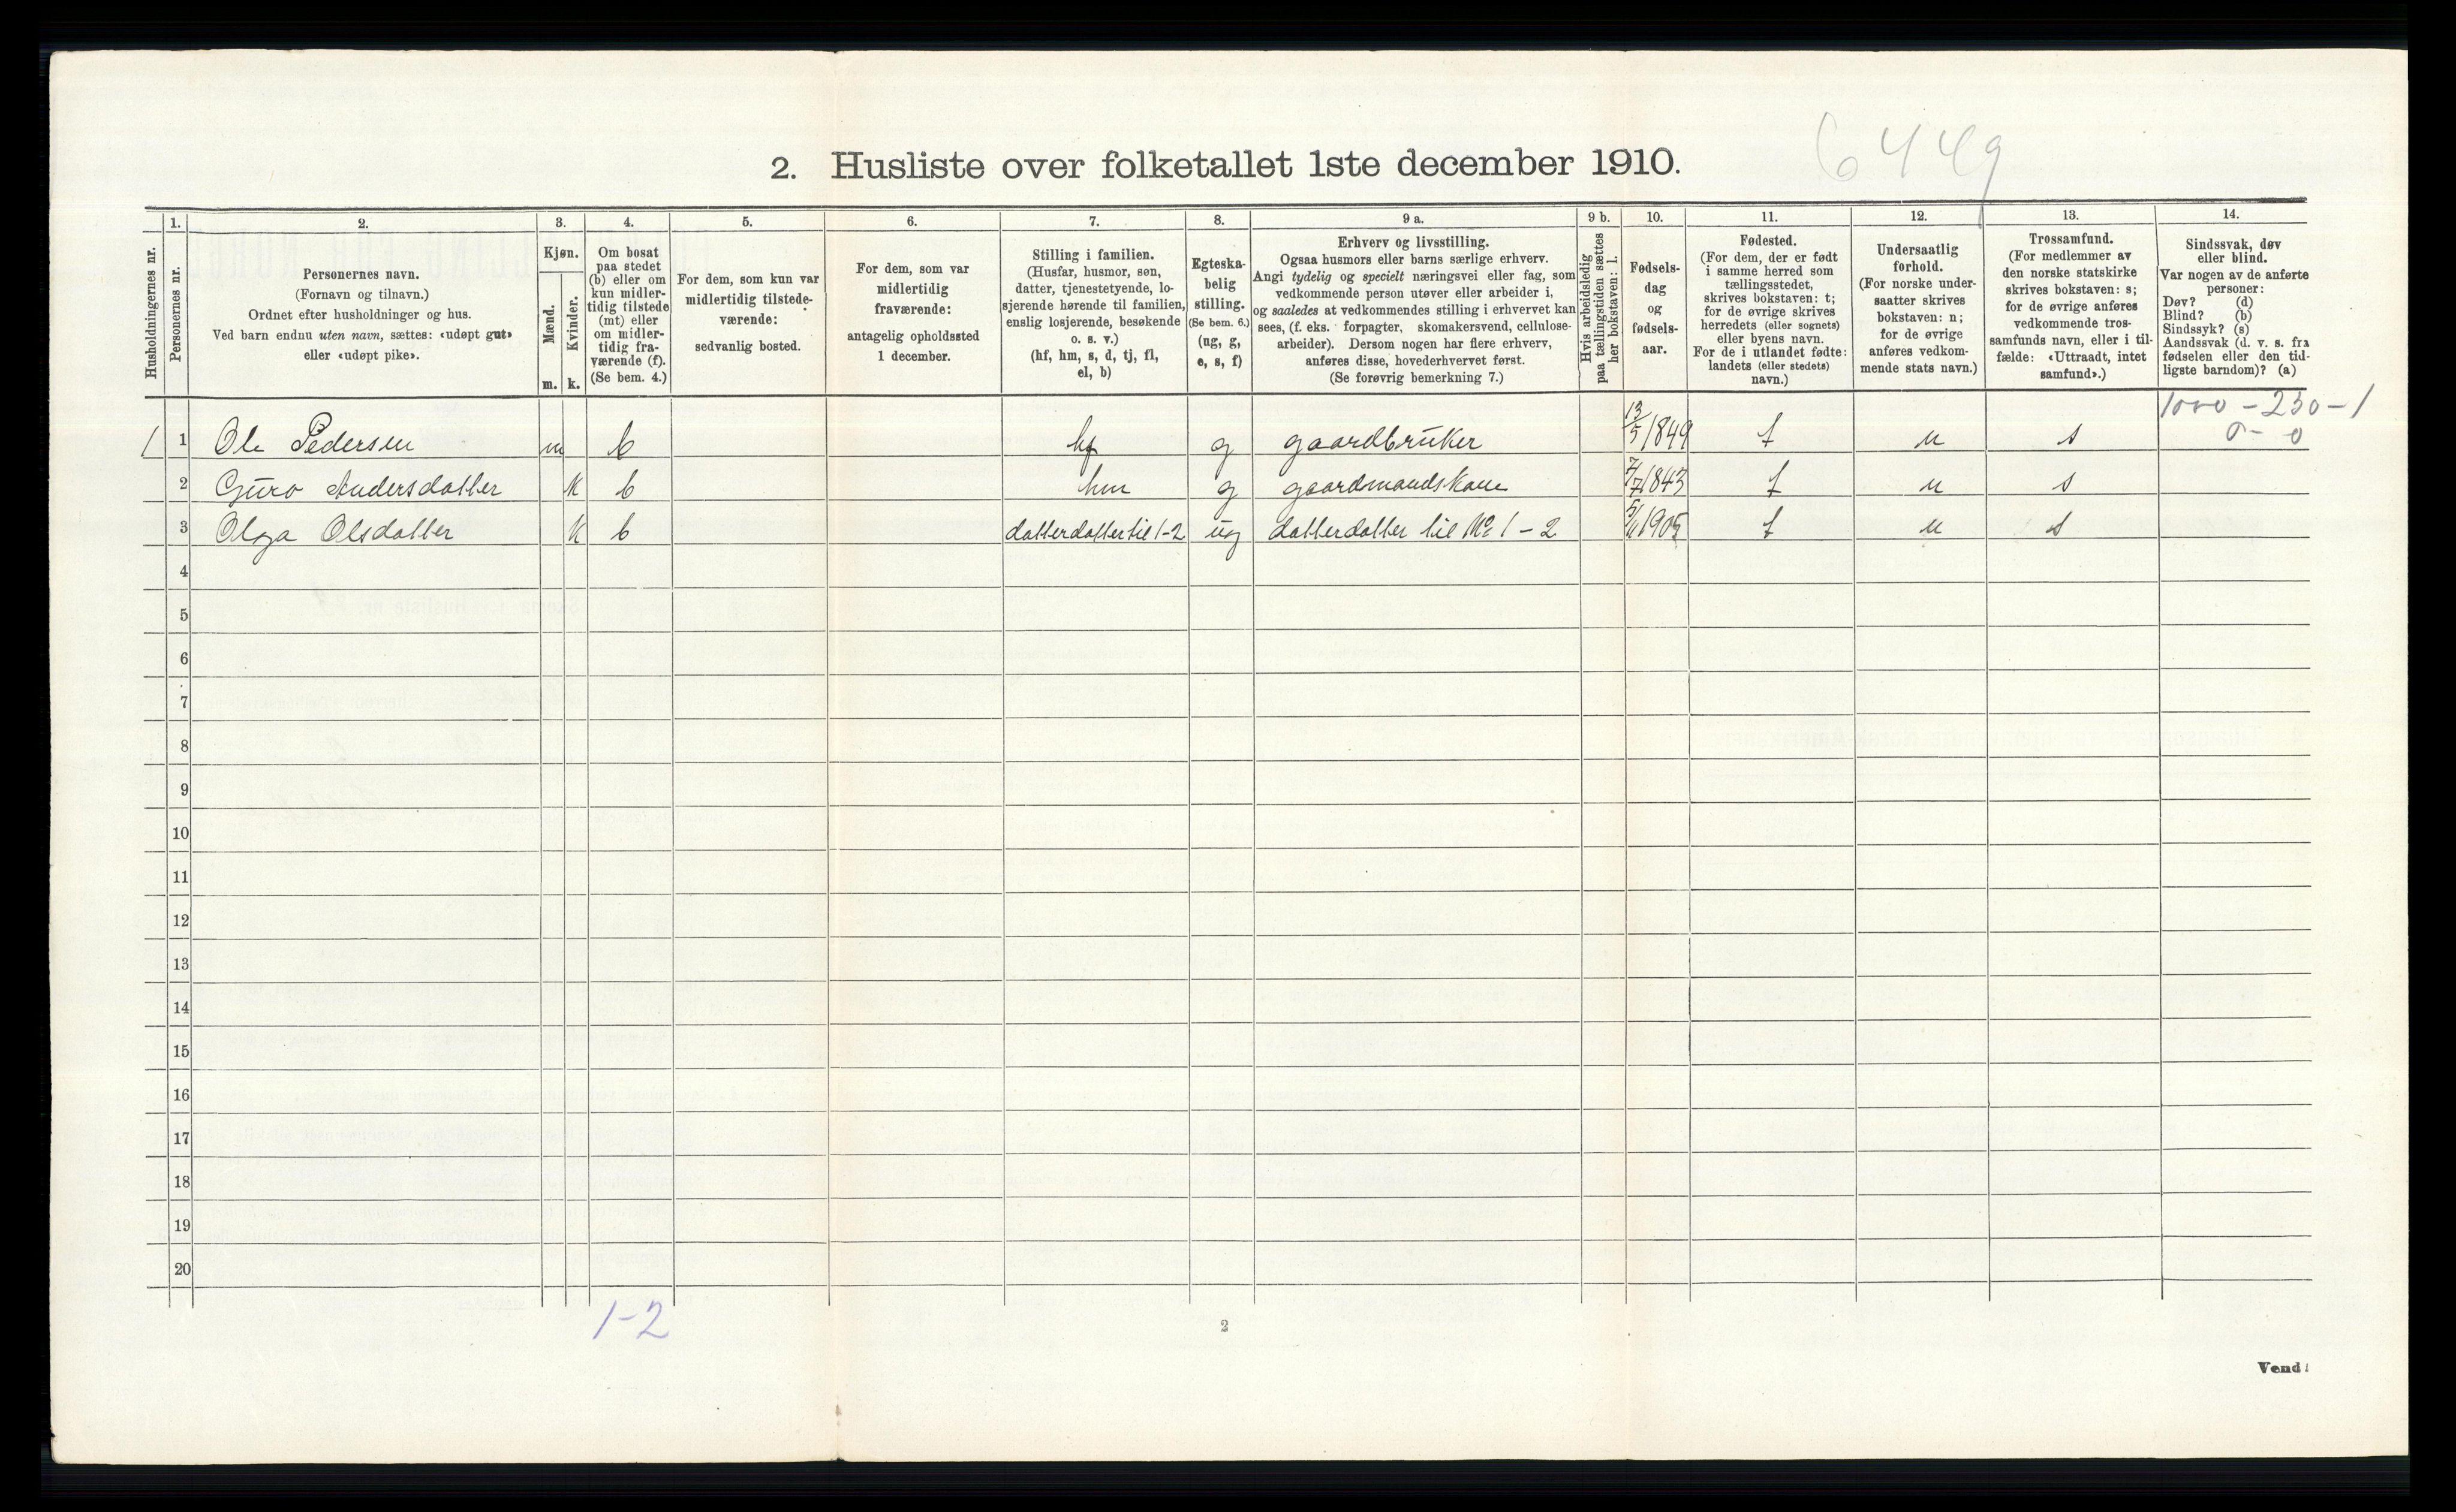 6449
2. Husliste over folketallet 1ste december 1910.
Husholdningernes nr.
1.
Personernes nr.
2.
Personernes navn.
(Fornavn og tilnavn.)
Ordnet efter husholdninger og hus.
Ved barn endnu uten navn, sættes: «udøpt gut»
eller «udøpt pike».
3.
Kjøn.
Mænd.
Kvinder.
m. k.
4.
Om bosat
paa stedet
(b) eller om
kun midler-
tidig tilstede
(mt) eller
om midler-
tidig fra-
værende (f).
(Se bem. 4.)
5.
For dem, som kun var
midlertidig tilstede-
værende:
sedvanlig bosted.
6.
For dem, som var
midlertidig
fraværende:
antagelig opholdssted
1 december.
7.
Stilling i familien.
(Husfar, husmor, søn,
datter, tjenestetyende, lo-
sjerende hørende til familien,
enslig losjerende, besøkende
o. s. v.)
(hf, hm, s, d, tj, fl,
el, b)
8.
Egteska-
belig
stilling.
(Se bem. 6.)
(ug, g,
e, s, f)
9 a.
Erhverv og livsstilling.
Ogsaa husmors eller barns særlige erhverv.
Angi tydelig og specielt næringsvei eller fag, som
vedkommende person utøver eller arbeider i,
og saaledes at vedkommendes stilling i erhvervet kan
sees, (f. eks. forpagter, skomakersvend, cellulose-
arbeider). Dersom nogen har flere erhverv,
anføres disse, hovederhvervet først.
(Se forøvrig bemerkning 7.)
9 b.
Hvis arbeidsledig
paa tællingstiden sættes
her bokstaven: l.
10.
Fødsels-
dag
og
fødsels-
aar.
11.
Fødested.
(For dem, der er født
i samme herred som
tællingsstedet,
skrives bokstaven: t;
for de øvrige skrives
herredets (eller sognets)
eller byens navn.
For de i utlandet fødte:
landets (eller stedets)
navn.)
12.
Undersaatlig
forhold.
(For norske under-
saatter skrives
bokstaven: n;
for de øvrige
anføres vedkom-
mende stats navn.)
13.
Trossamfund.
(For medlemmer av
den norske statskirke
skrives bokstaven: s;
for de øvrige anføres
vedkommende tros-
samfunds navn, eller i til-
fælde: «Uttraadt, intet
samfund».)
14.
Sindssvak, døv
eller blind.
Var nogen av de anførte
personer:
Døv? (d)
Blind? (b)
Sindssyk? (s)
Aandssvak (d. v. s. fra
fødselen eller den tid-
ligste barndom)? (a)
1000 - 250 - 1
0 - 0
1 1 Ole Pedersen m b hf g gaardbruker 13/5 1849 t n s
2 Guro Andersdatter k b hm g gaardmandskone 7/7 1843 t n s
3 Olga Olsdatter k b datterdatter til 1-2 ug datterdatter til No 1-2 5/11 1905 t n s
4
5
6
7
8
9
10
11
12
13
14
15
16
17
18
19
20
1-2
2
Vend!